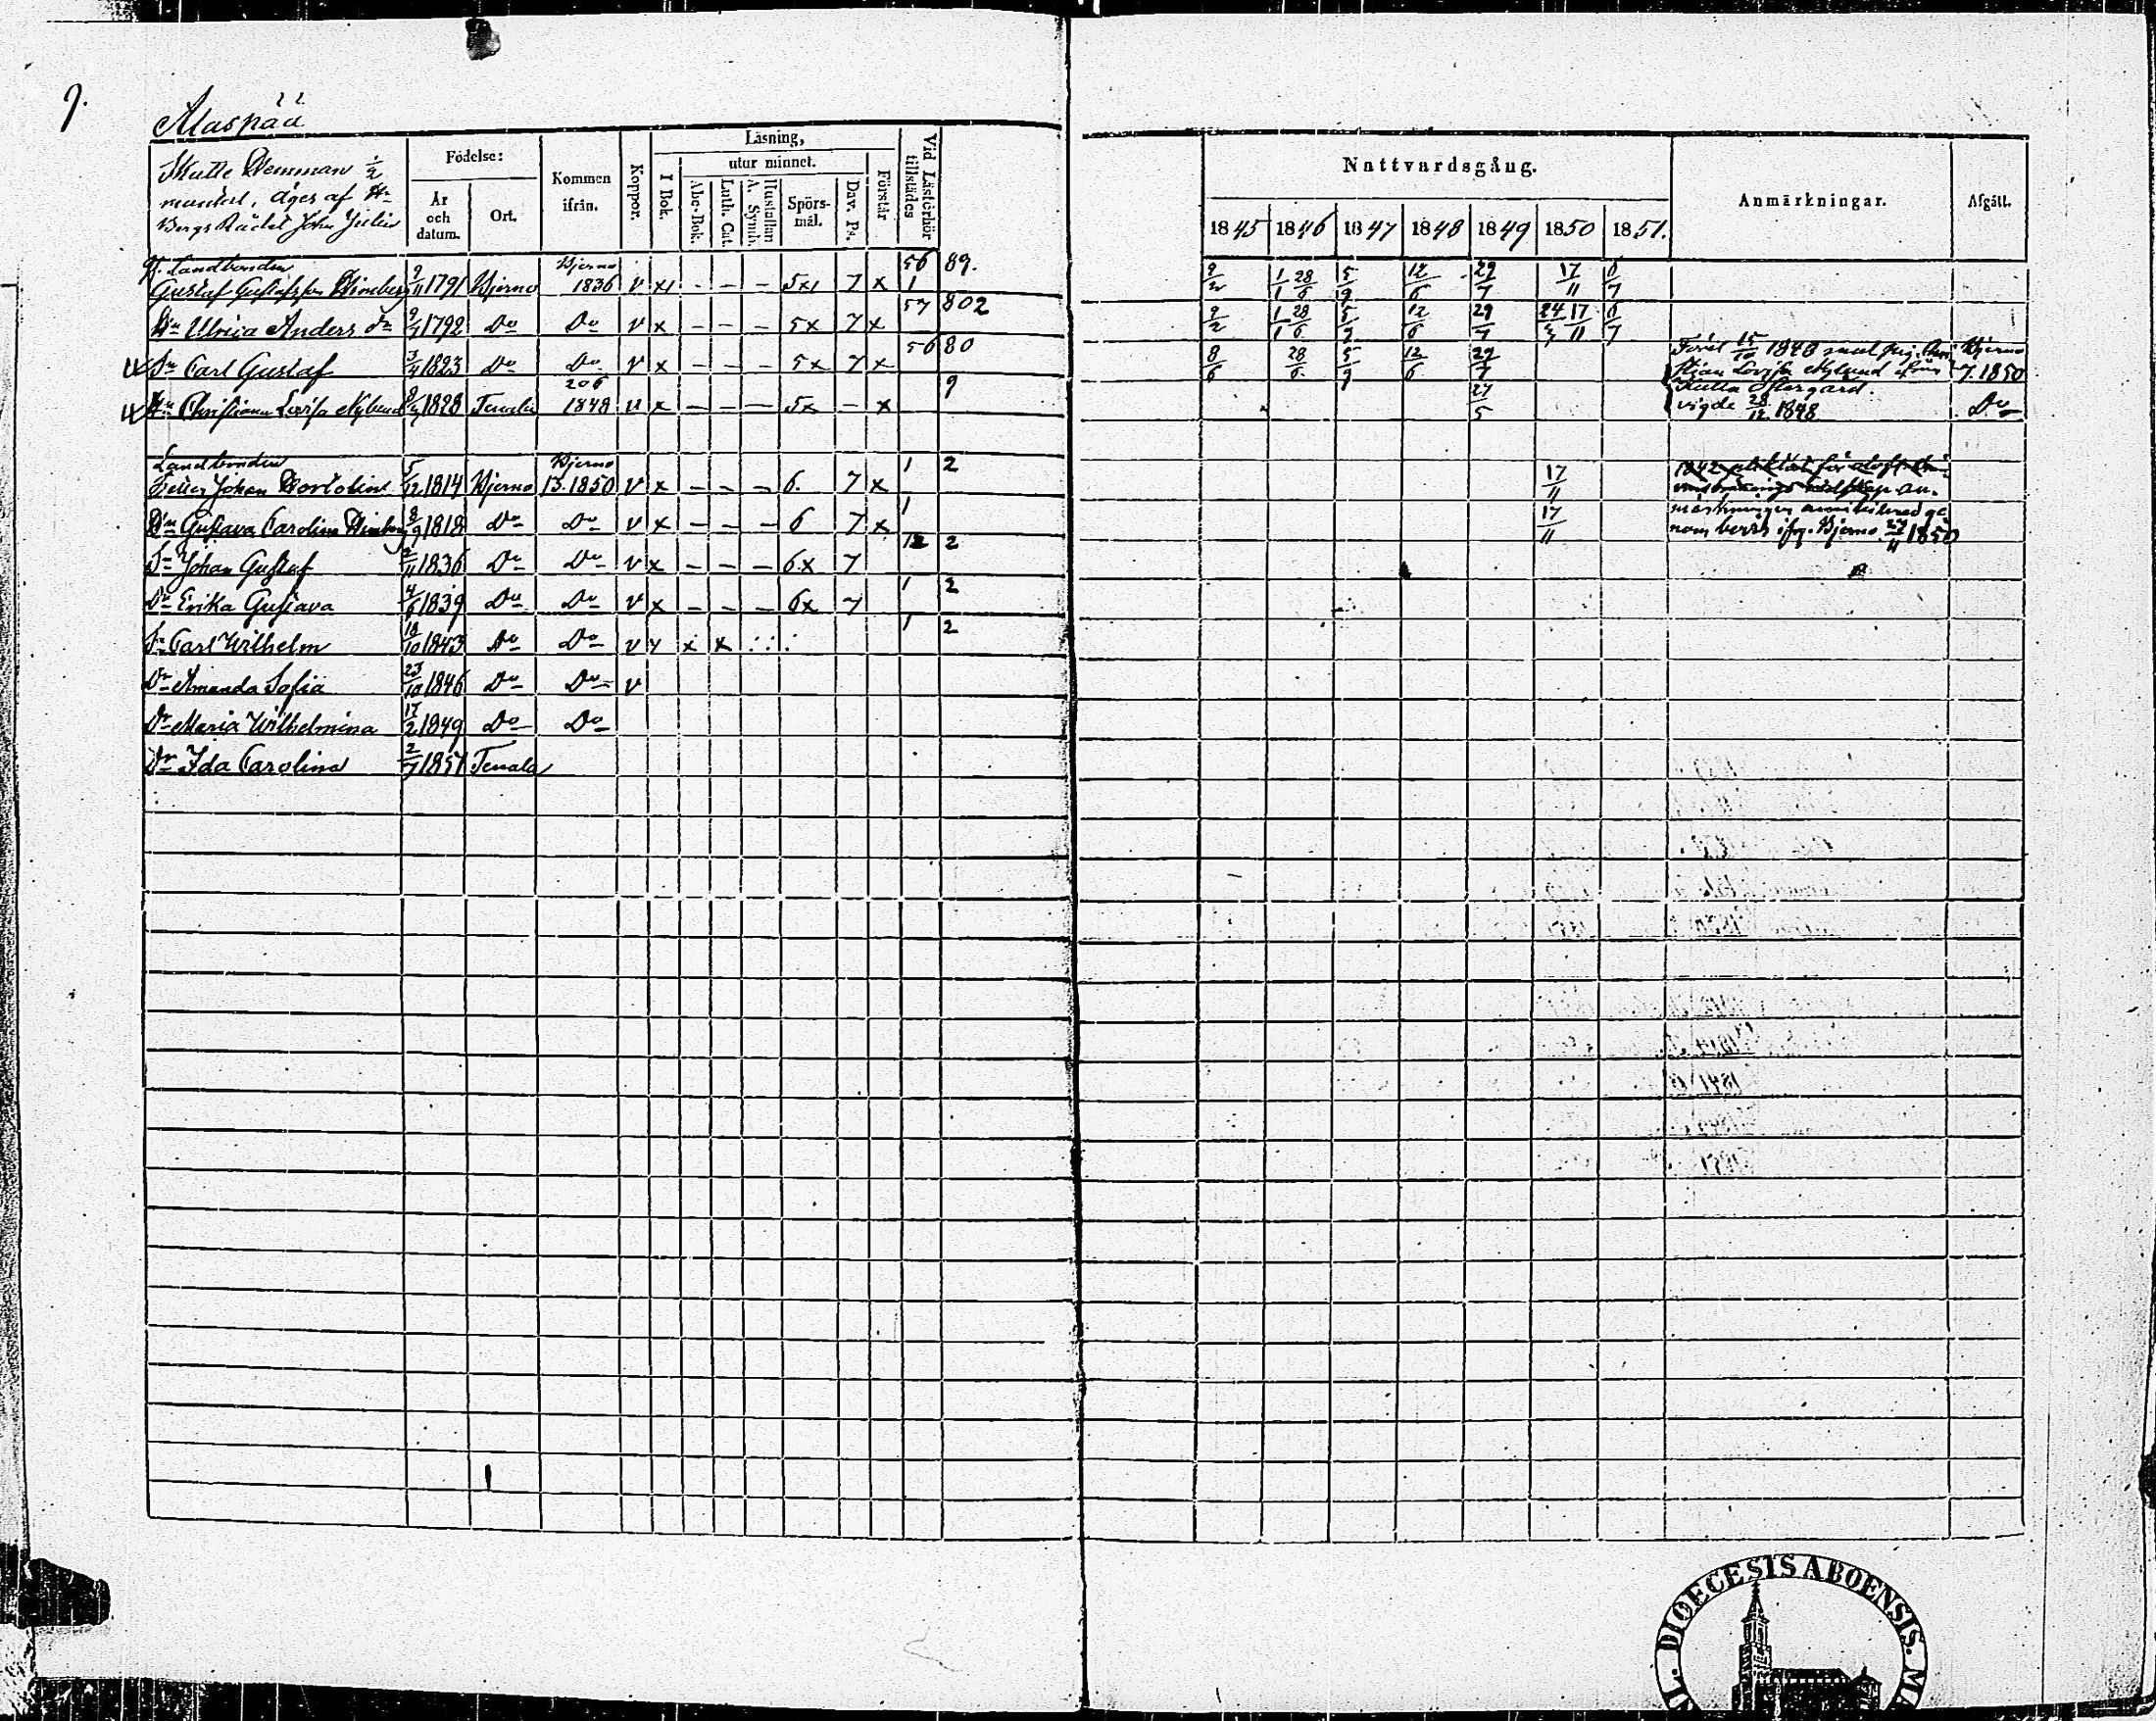 9.
Alaspää
Skatte Hemman 1/2
mantal, äges af Hr
Bergs Rådet John Julin
Födelse:
År
och
datum.
Ort.
Kommen
ifrån.
Koppor.
Läsning,
utur minnet.
I Bok.
Abc-Bok.
Luth. Cat.
Hustaflan
A. Symb.
Spörs-
mål.
Dav. Ps.
Förstår
Vid Läsförhör
tillstädes
Nattvardsgång.
1845 1846 1847 1848 1849 1850 1851.
Anmärkningar.
Afgått.
Landbonden Bjerno 56 89.
Gustaf Gustafsson 9/11 1791 Bjerno 1836 v x1 - - - 5x1 7 x 1 1/1 28/6 5/9 12/6 29/7 17/11 6/7
Hu Ulrica Anders dr 1792 Do Do v x - - - 5x 7 x 57 802 9/2 1/1 28/6 5/9 12/6 29/7 17/11 6/7
Sn Carl Gustaf 3/4 1823 Do Do v x - - - 5x 7 x 56 80 8/6 28/6 5/9 12/6 29/7 1848 Bjerno
7. 1850
206
Hu Christiana Lovisa Nylund 1828 Tenala 1848 v x - - - 5x - x 9 27/5 vigde 28/12 1848 Do
Landbonden Bjerno 1 2
Johan 5/12 1814 Bjerno 13. 1850 v x - - - 6. 7 x 17/11
Hu Gustava Carolina 8/9 1818 Do Do v x - - - 6 7 x 1 17/11 Bjerno 1850
Sn Johan Gustaf 2/11 1836 Do Do v x - - - 6x 7 12 2
Dr Erika Gustava 4/6 1839 Do Do v x - - - 6x 7 1 2
Sn Carl Wilhelm 18/10 1843 Do Do v x x x 1 2
Dr Amanda Sofia 23/10 1846 Do Do v
Dr Maria Wilhelmina 17/2 1849 Do Do
Dr Ida Carolina 2/7 1851 Tenala
DIOECESIS ABOENSIS.